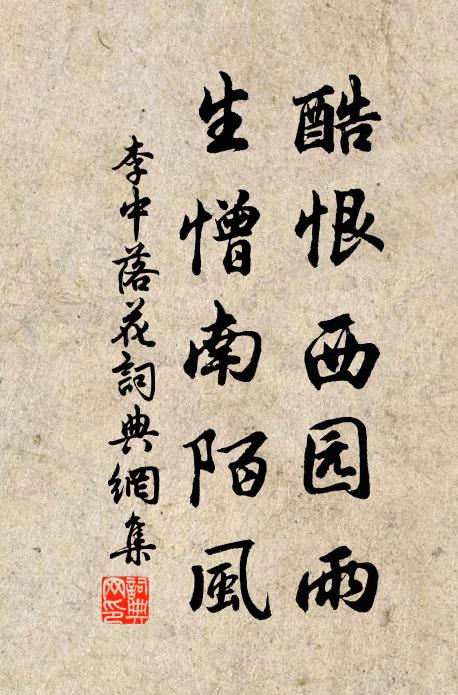 酷恨西园雨
生憎南陌風
李中落花詞典網集
詞典